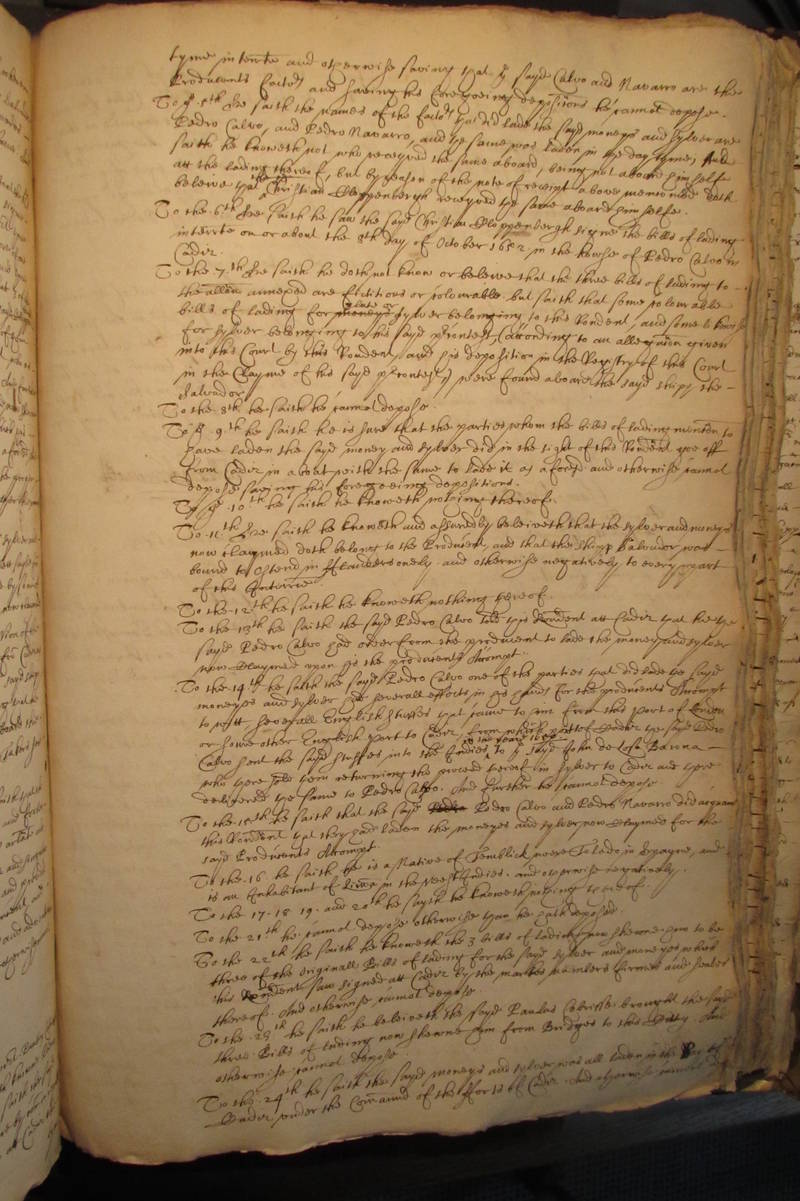 tyme interrate and otherwise saving that the sayd Calvo and Navarro are the
Producents factors and saveing his foregoeing depositions he cannot depose.
To the 5th hee saith the names of the factors that did lade the sayd moneys and sylver are
Pedro Calvo, and Pedro Navarro, and the same was laden in the day tyme, And
saith he knoweth not who receyved the same aboard, being not aboard himselfe
att the lading thereof, but by reason of the note of receipt above mentioned doth
beleive that the sayd Christian Cloppenbergh receyved the same aboard himselfe.
To the 6th hee saith he saw the sayd Christian Cloppenbergh signe the bills of lading
interrate on or about the 8th day of October 1652 in the howse of Pedro Calvo in
Cadiz.
To the 7.th hee saith he doth not know or beleeve that the three bills of lading to
the allegation annexed are fictitious or colourable but saith that some colourable
bills of lading for plate or sylver belonging to this Rondent, and some likewise
for sylver belonging to his sayd Contest, (according to an allegation given
into this Court by this Rondent, and his deposition in the Registry of this Court
in the Clayme of his sayd Contest) were found aboard the sayd shipp the
Salvador
To the 8th he saith he cannot depose.
To the 9.th he saith he is sure that the parties whom the bills of lading mention to
have laden the sayd money and sylver did in the sight of this Rondent goe off
from Cadiz in a boat with the same to lade it as aforesd and otherwise cannot
depose saving his foregoeing depositions.
To the 10th he saith he knoweth nothing thereof.
To 11th hee saith he knoweth and assuredly beleiveth that the sylver and moneys
now claymed doth belong to the Producent, and that the shipp Salvador was
bound to Ostend in Flanders onely and otherwise negatively to every part
of this Interrie
To the 12th he saith he knoweth nothing hereof.
To the 13th he saith the sayd Pedro Calvo told this Rondent att Cadiz that hee the
sayd Pedro Calvo had order from the producent to lade the money and sylver
now claymed upon his the producents Accompt.
To the 14th he saith the sayd Pedro Calvo one of the parties that did lade the sayd
moneyes and sylver had severall effects in his hands for the producents Accompt
to witt severall English stuffes that came to him from this port of London
or some other English port to Cadiz, from which port of Cadiz the sayd Pedro
Calvo sent the sayd stuffes into the Indies in the yeare to the sayd John de Barma
who there sold them returning the proceed thereof in sylver to Cadiz and there
delivered the same to Pedro Calvo. And further he cannot depose
To the 15th he saith that the sayd Pedro Calvo and Pedro Navarro did acquaint
this Rondent that they had laden the moneyes and sylver now claymed for the
sayd Producents Accompt
To the 16. he saith he is a Native of Temblick neere Toledo in Spayne, and
is an Inhabitant of Lima in the West Indies. and otherwise negatively.
To the 17. 18 19. and 20th he sayth he knoweth nothing thereof.
To the 21th he cannot depose otherwise than he hath deposed.
To the 22th he saith he knoweth the 3 bills of lading now shewne him to be
three of the originall Bills of lading for the sayd sylver and moneyes which
this Rondent saw signed att Cadiz by the markes numbers firmes and seales
thereof. And otherwise cannot depose
To the 23th he saith he beleiveth the sayd Paulus brought the sayd
three Bills of lading now shewne him from Bridges to this Citty. And
otherwise cannot depose
To the 24th he saith the sayd moneys and sylver was all laden in the Bay of
Cadiz under the Command of the fforts of Cadiz. And otherwise cannot